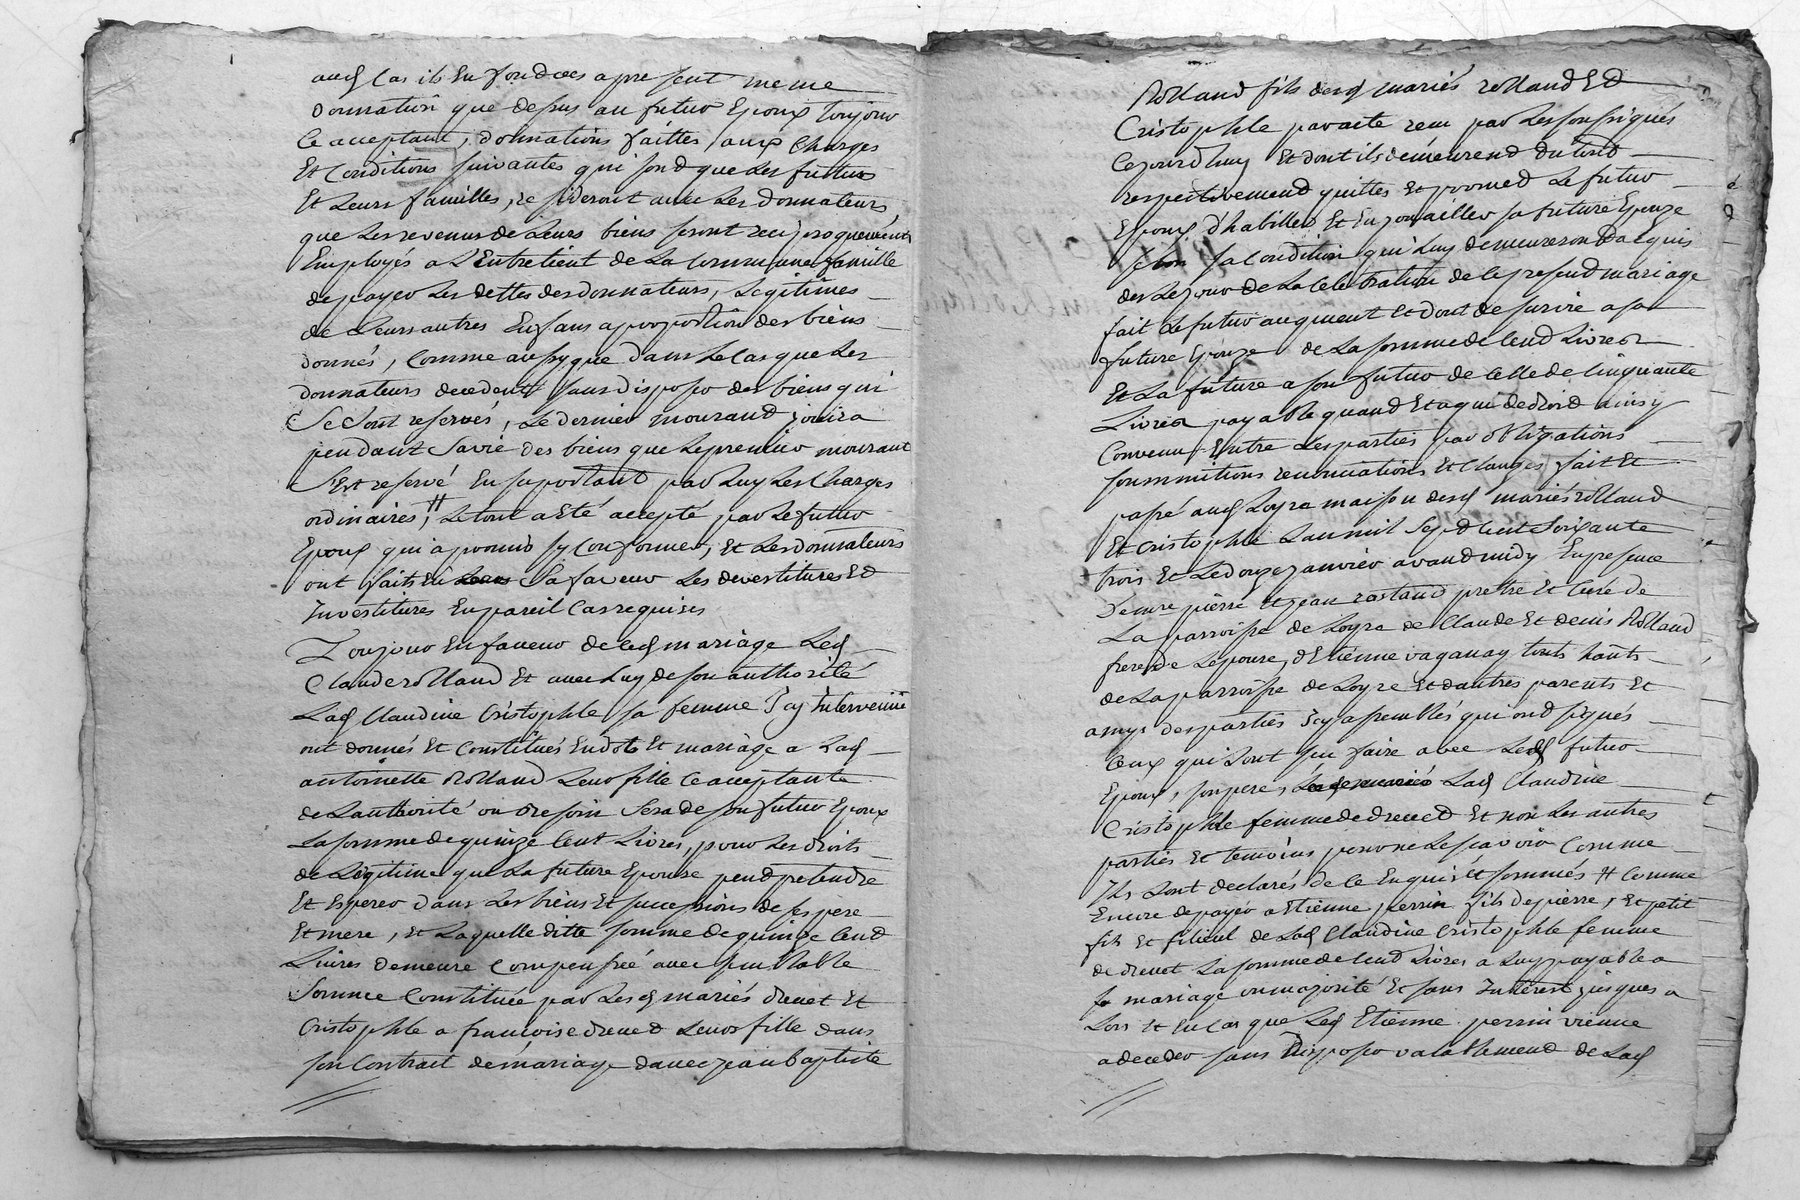 aud cas ils en fond des apresent meme
donnation que depus au futur Epoux toujour
ce acceptant, donnations faittes aux Charges
Et Conditions suivantes qui sond que les futurs
Et Leurs familles, resideront avec Les donnateurs,
que Les revenus de Leurs biens seront reciproquement
Employés a L'Entretient de La Commune famille
de payer Les dettes des donnateurs, Legitimes
de Leurs autres Enfans aproportion des biens
donnés, Comme aussy que dans Le Cas que Les
donnateurs decedent sans disposer des biens qui
Se Sont reservés, Le dernier mourand jouira
pendant Sa vie des biens que Le premier mourant
S'Est reservé En suportant par Luy Les Charges
ordinaires,# Le tout a Eté accepté par Le futur
Epoux qui a promis sy Conformer, Et Les donnateurs
ont fait En Sa faveur Les devestitures Et
Investitures En pareil Cas requises
Toujour En faveur de ced mariage Led
Claude rolland Et avec Luy de son authorité
Lad Claudine Cristophle sa femme Icy Intervenüe
ont donnés Et Constitués En dot Et mariage a Lad
antoinette Rolland Leur fille ce acceptante
de Lauthorité ou besoin Sera de son futur Epoux
La somme de quinze Cent Livres, pour Les droits
de Legitime que La future Epouse peud pretendre
Et Esperer dans Les biens Et successions de ses pere
Et mere, Et Laquelle ditte somme de quinze Cend
Livres demeure Compensée avec semblable
Somme Constituée par Lesd mariés drevet Et
Cristophle a francoise dreved Leur fille dans
son Contract de mariage davec jean baptiste
Rolland fils desd mariés rolland Et
Cristophle pavacte recu par Les soussignés
Cejourdhuy Et dont ils demeurend du tout
respectivemend quittes Et promed Le futur
Epoux d'habiller Et Enjouailler sa future Epouze
selon sa Condition qui Luy demeureron dacquis
des Le jour de La Celebration de ce presend mariage
fait Le futur augment Et dont de survie a sa
future Epouze de La somme de Cend Livres
Et La future a son futur de Celle de Cinquante
Livres payable quand Et a qui de droid ainsy
Convenu Entre Les parties par obligations
soummitions renonciations Et Clauses fait Et
passé aud Loyre maison desd mariés rolland
Et Cristophle L'an mil Sept Cent Soixante
trois Et Le douze janvier avand midy En presence
De mre pierre Et jean rostaud prettre Et Curé de
La parroisse de Loyre de Claude Et denis Rolland
freres de Lepouse, d'Etienne vaganay touts habts
de La parroisse de Loyre Et dautres parents Et
amys des parties Icy assemblés qui ond signés
Ceux qui Sont seu faire avec Led futur
Epoux, son pere, Lad Claudine
Cristophle femme de dreved Et non Les autres
parties Et temoins pour ne Le scavoir Comme
Ils Sont declarés de Ce Enquis Et sommés # Comme
Encore de payer a Etienne perrin fils de pierre, Et petit
fils Et filieul de Lad Claudine Cristophle femme
de drevet La somme de Cend Livres a Luy payable a
mariage ou majorité Et sans Interest jusques a
Lors Et En Cas que Led Etienne perrin vienne
a deceder sans disposer valablemend de Lad